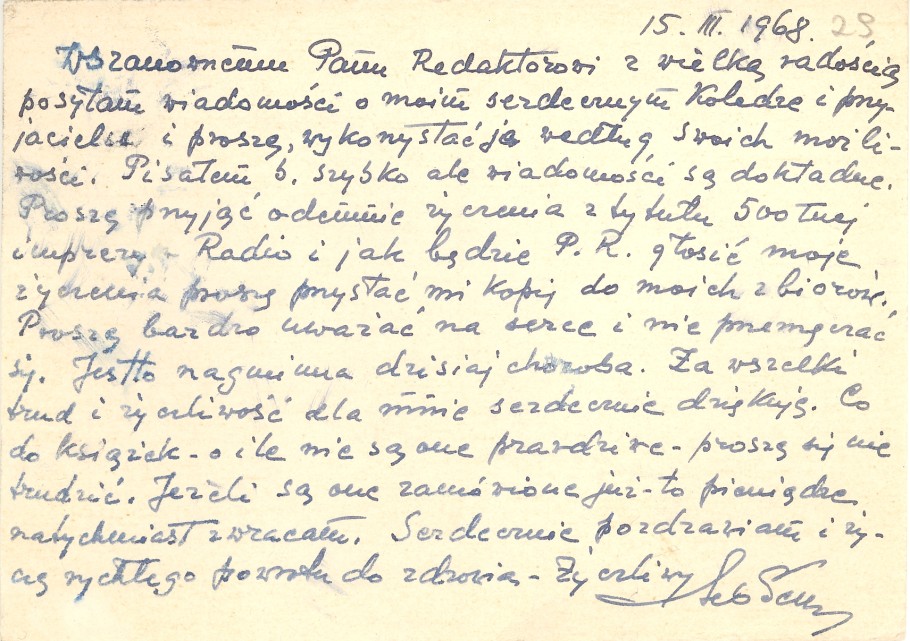 15. III. 1968. 29
Wszanownemu Panu Redaktorowi z wielką radością
posyłam wiadomości o moim serdecznym Koledze i przy-
jacielu i proszę, wykorzystać je według swoich możli-
wości. Pisałem b. szybko ale wiadomości są dokładne.
Proszę przyjąć odemnie życzenia z tytułu 500tnej
imprezy - Radio i jak będzie P. R. głosić moje
życzenia proszę przysłać mi kopię do moich zbiorów.
Proszę bardzo uważać na serce i nie przemęczać
się. Jestto nagminna dzisiaj choroba. Za wszelki
trud i życzliwość dla mnie serdecznie dziękuję. Co
do książek - o ile nie są one prawdziwe - proszę się nie
trudzić. Jeżeli są one zamówione już - to pieniądze
natychmiast zwracam. Serdecznie pozdrawiam i ży-
czę rychłego powrotu do zdrowia - Życzliwy